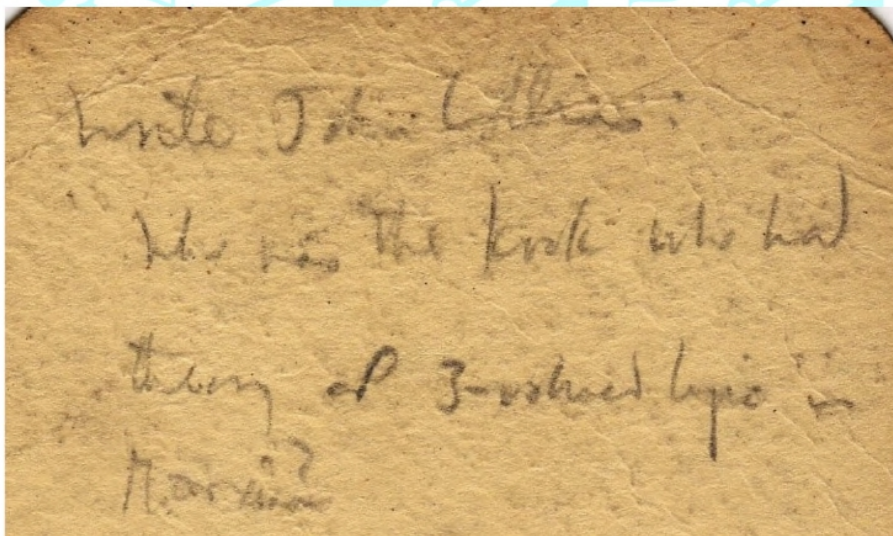 Write John Collins:
who was the kook who had
theory of 3-valued logic in